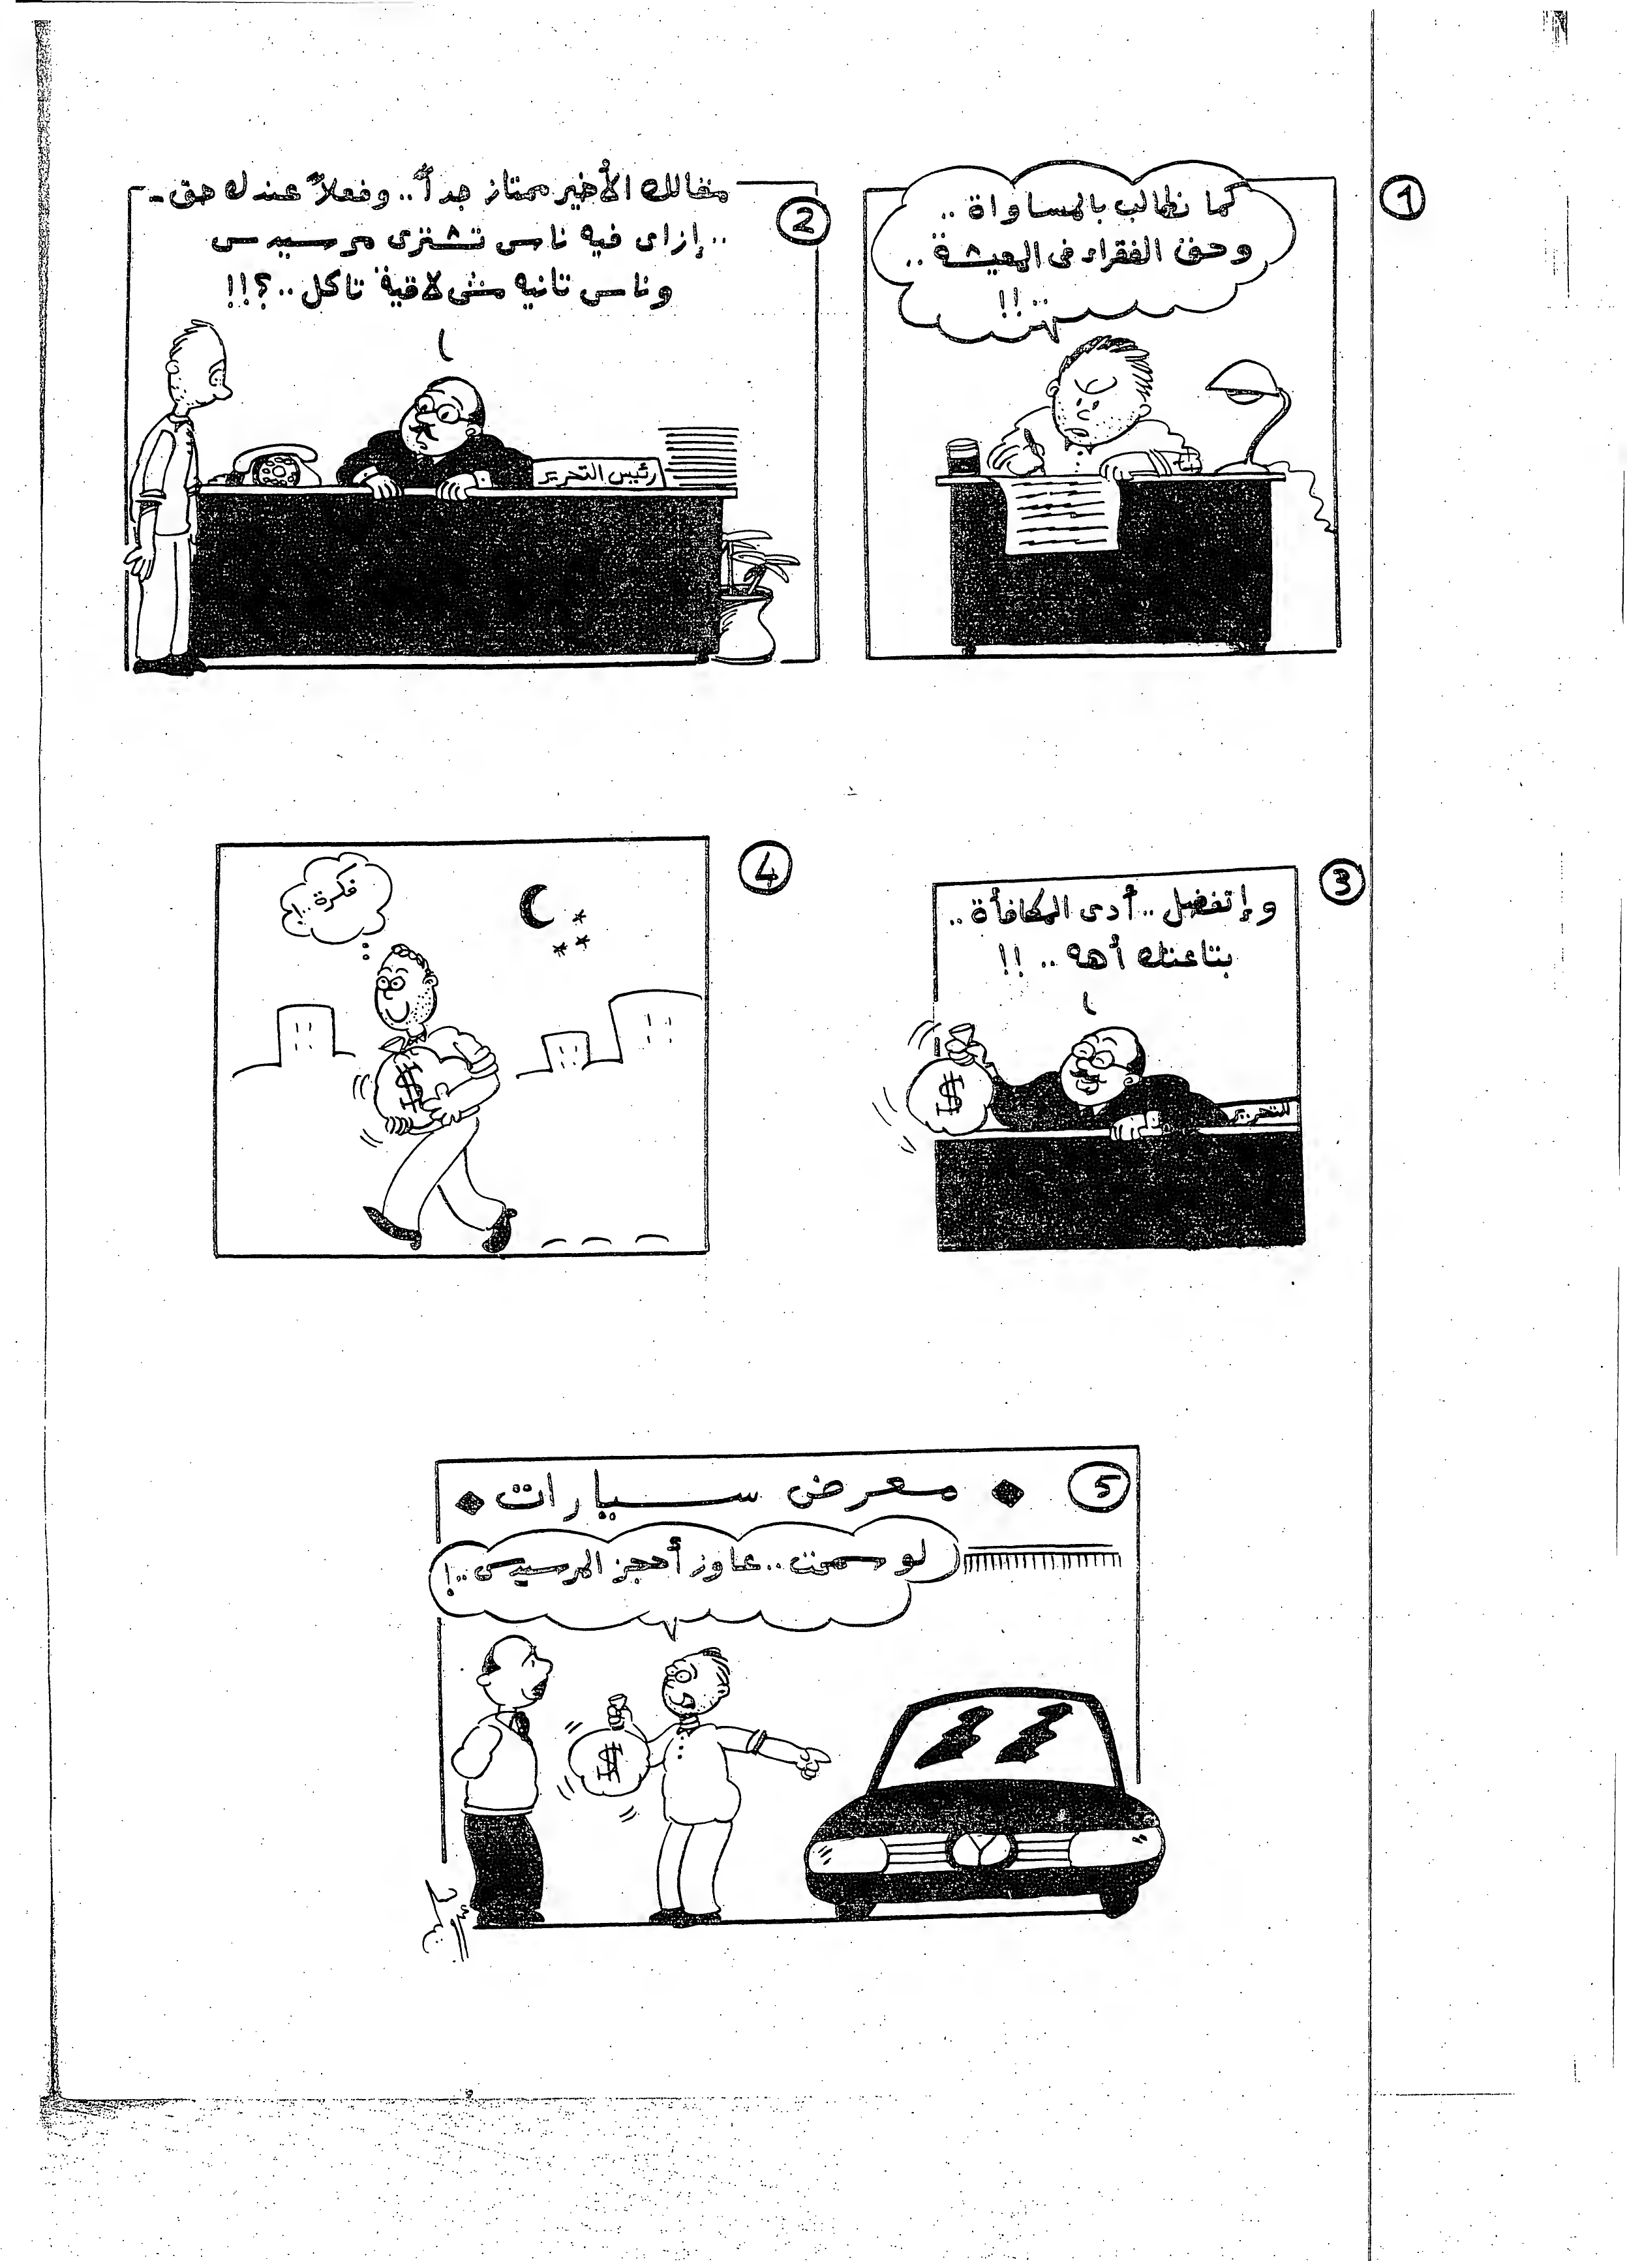 1
كما نطالب بالمساواة ..
وحق الفقراء فى المعيشة ..
..!!
2
مقالك الأخير ممتاز جداً.. وفعلاً عندك حق -
..إزاى فيه ناس تشترى مرسيدس
وناس تانيه مش لاقية تاكل..؟!!
رئيس التحرير
3
وإتفضل.. أدى المكافأة ..
بتاعتك أهه ..!!
التحرير
$
4
فكرة..!
$
5
معرض سيارات
لو سمحت.. عاوز أحجز المرسيدس..!
$